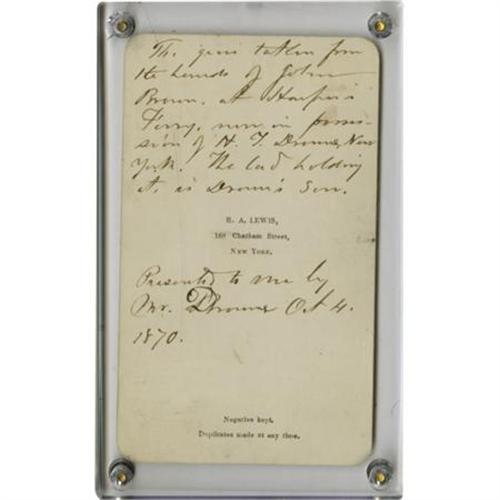 The guns taken from
the hands of John
Brown, at Harper's
Ferry, now in posses-
sion of H. T. Drowne, New
York. The lad holding
it, is Drown's Son.
R. A. LEWIS,
160 Chatham Street,
NEW YORK.
Presented to me by
Mr. Drowne Oct 4.
1870.
Negative kept.
Duplicates made at any time.